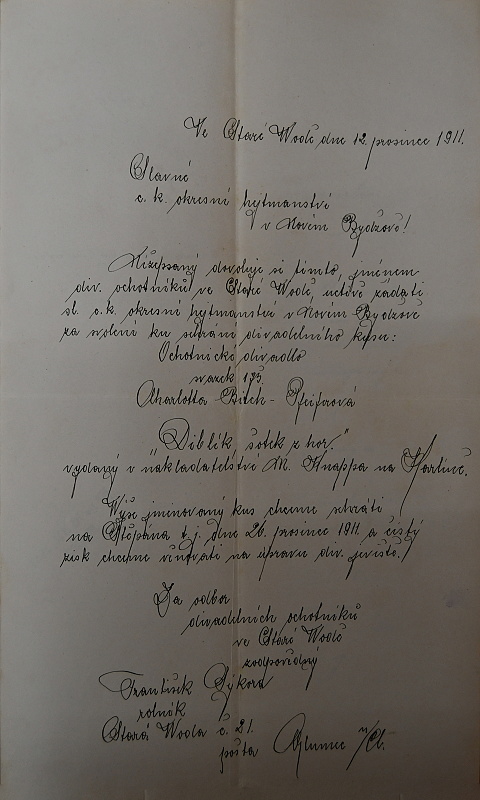 Ve Staré Wodě dne 12. prosince 1911.
Slavné
c. k. okresní hejtmanství
v Novém Bydžově!
Nížepsaný dovoluje si tímto, jménem
div. ochotníků ve Staré Wodě, uctivě žádati
sl. c. k. okresní hejtmanství v Novém Bydžově
za svolení ku sehrání divadelního kusu:
Ochotnické divadlo
svazek 135.
Charlotta Birch-Pfeifrová
"Diblík šotek z hor."
vydaný v nakladatelství M. Knappa na Karlíně.
Výše jmenovaný kus chceme sehráti
na Štěpána t. j. dne 26. prosince 1911. a čistý
zisk chceme věnovati na úpravu div. jeviště.
Za odbor
divadelních ochotníků
ve Staré Wodě
zodpovědný
František Sýkora
rolník
Stará Woda č. 21.
pošta Chlumec n/Cl.